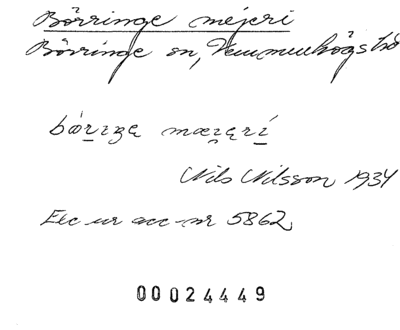 Börringe mejeri
Börringe sn, Vemmenhögs hd
bǿri̱ŋe mæi̯erí̱
Nils Nilsson 1934
Exc ur acc-nr 5862
00024449